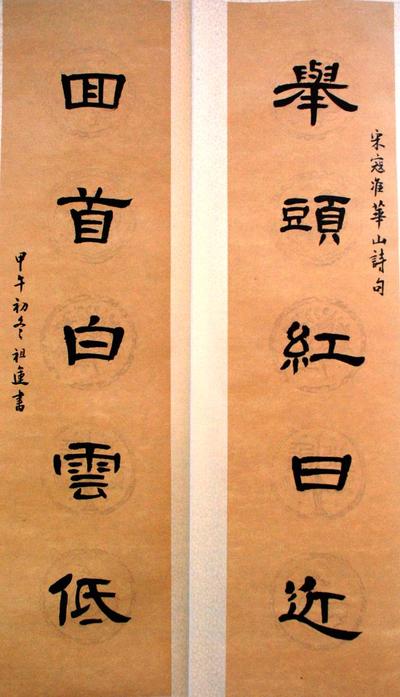 舉頭紅日近
宋寇准華山詩句
回首白雲低
甲午初冬祖蓮書